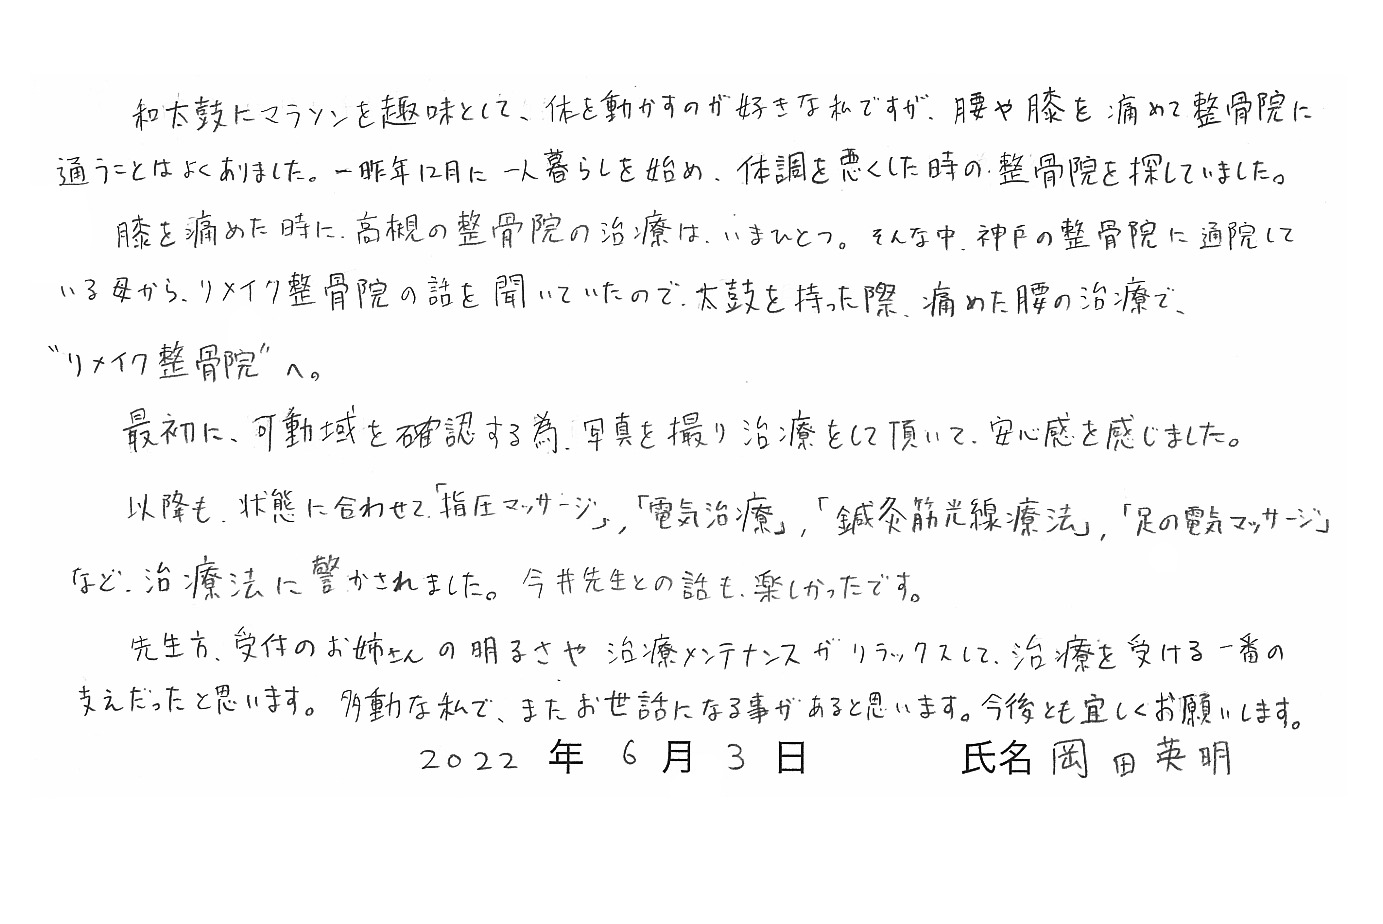 和太鼓にマラソンを趣味として、体を動かすのが好きな私ですが、腰や膝を痛めて整骨院に
通うことはよくありました。一昨年12月に一人暮らしを始め、体調を悪くした時の整骨院を探していました。
膝を痛めた時に、高槻の整骨院の治療は、いまひとつ。そんな中、神戸の整骨院に通院して
いる母から、リメイク整骨院の話を聞いていたので、太鼓を持った際、痛めた腰の治療で、
"リメイク整骨院"へ。
最初に、可動域を確認する為、写真を撮り治療をして頂いて、安心感を感じました。
以降も、状態に合わせて、「指圧マッサージ」,「電気治療」,「鍼灸筋光線療法」,「足の電気マッサージ」
など、治療法に驚かされました。今井先生との話も、楽しかったです。
先生方、受付のお姉さんの明るさや治療メンテナンスがリラックスして、治療を受ける一番の
支えだったと思います。多動な私で、またお世話になる事があると思います。今後とも宜しくお願いします。
2022年6月3日 氏名 岡田英明